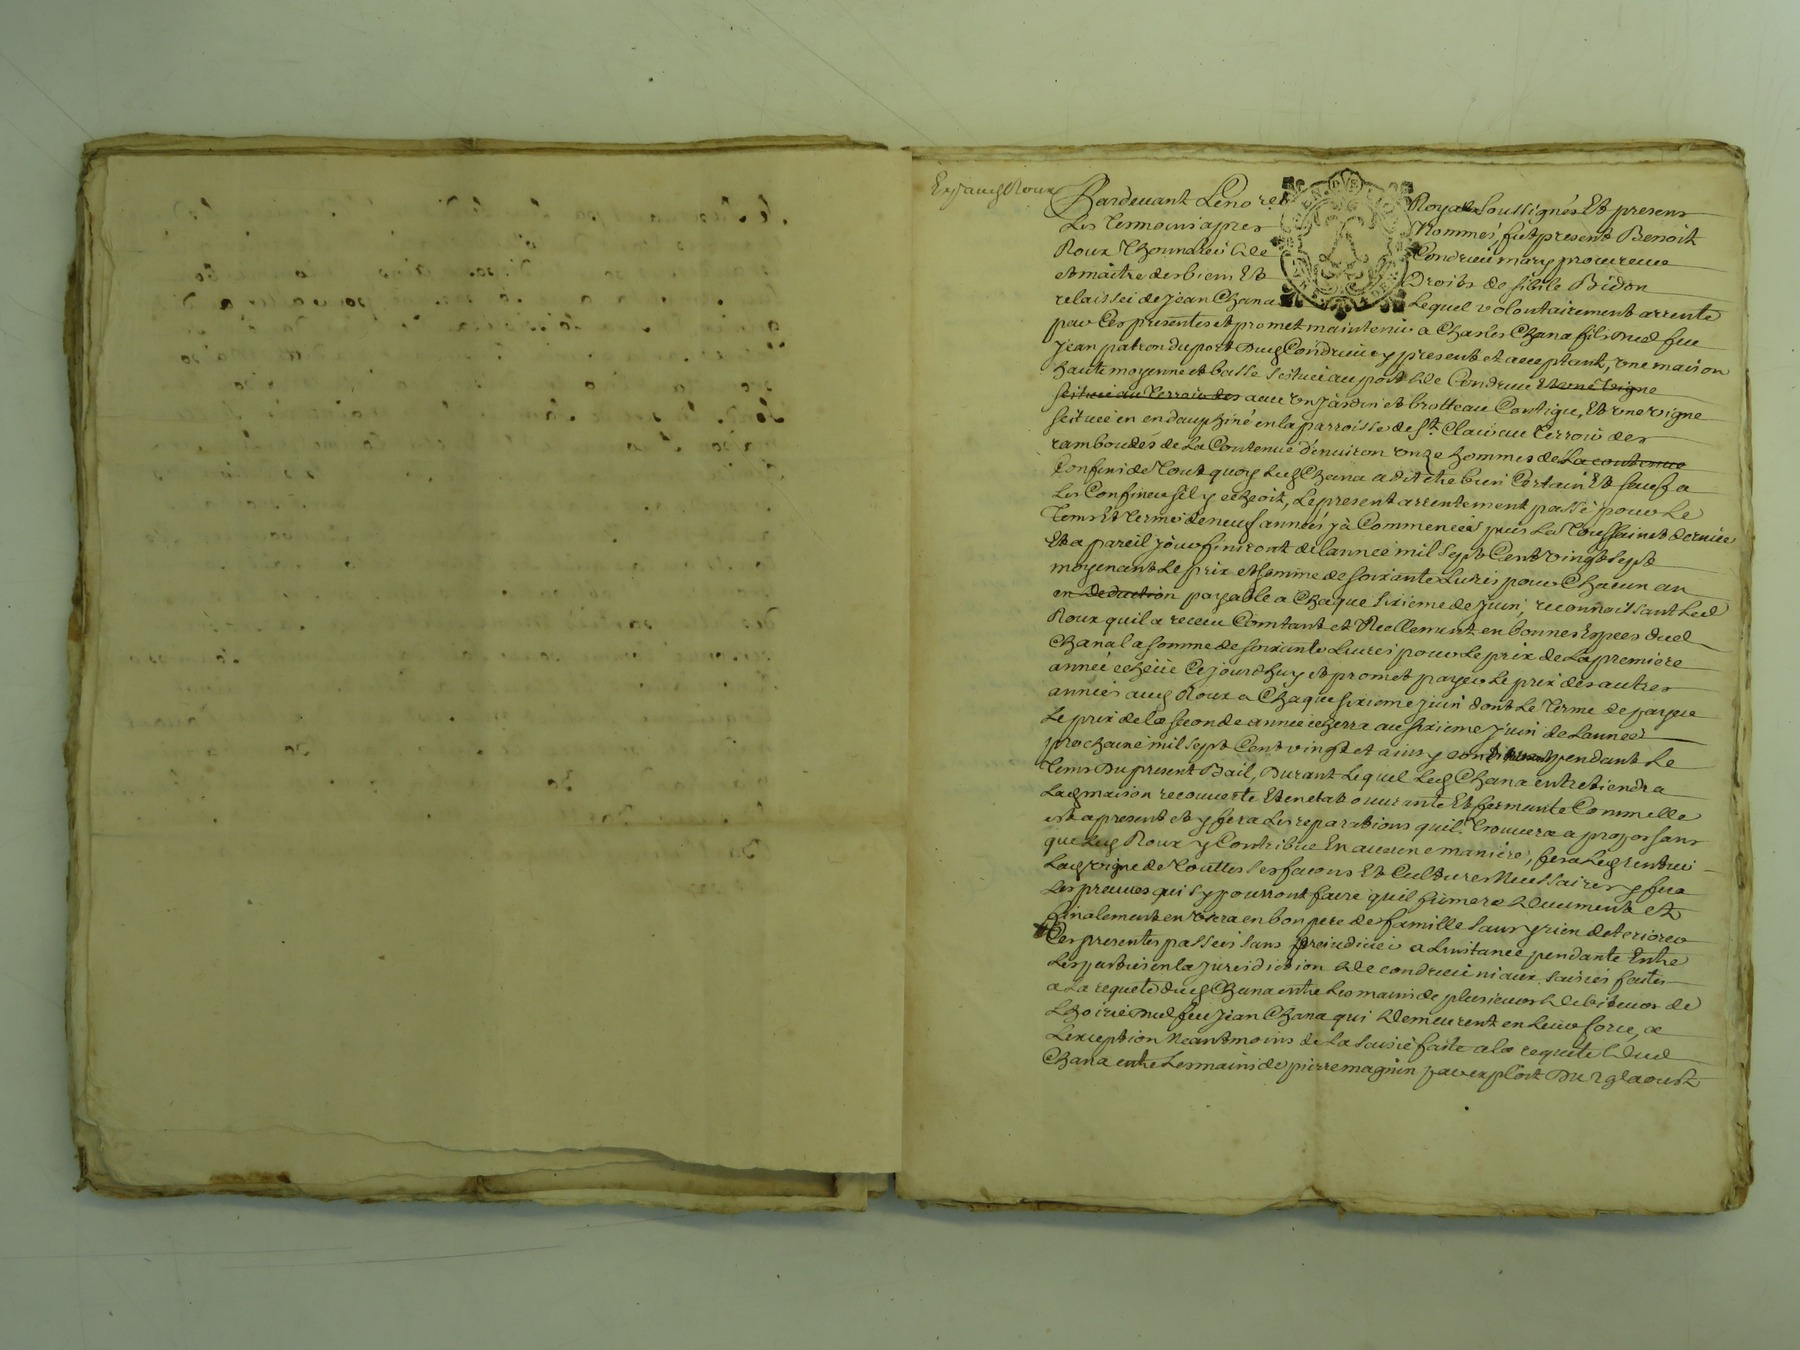 Exp. aud. Roux
Pardevant Le no.re Royal Soussigné Et present
Les Temoins apres Nommés, fut present Benoit
Roux Thoundrei de Condrieu mary procureur
et maitre des biens Et Droits de sibile Bidon
relaissée de jean Chana Lequel volontairement arrente
par Ces presentes et promet maintenir a Charles Chana fils dud feu
Jean patron du port dud Condrieu y present et acceptant, une maison
haute moyenne et basse scituée au port de Condrieu Et une vigne
scituée au Terroir des avec un jardin et brotteau Contigu, Et une vigne
scituée en en dauphiné en la parroisse de St. Clair au Terroir des
ramboudes de La Contenue d'environ onze hommes de La contenue
Confins de Tout quoy Led. Chana a dit etre bien Certain Et sauf a
Les Confiner s'il y echeoit, Le present arrentement passé pour Le
Tems Et Terme de neuf années ja Commencées puis La Toussaint derniere
Et a pareil jour finiront de l'année mil sept Cent vingt sept
moyenant Le prix et somme de soixante Livres pour Chacun an
en deduction payable a Chaque sixieme de Juin, reconnoissant Led
Roux qu'il a receu Comtant et Reellement en bonnes Especes dud
Chana la somme de soixante Livres pour Le prix de La premiere
année echeüe Ce jourdhuy et promet payer Le prix des autres
années aud. Roux a Chaque sixieme juin dont Le Terme de payer
Le prix de la seconde année echerra au sixieme Juin de L'année
prochaine mil sept Cent vingt et ainsy pendant Le
Tems Du present Bail, Durant Lequel Led. Chana entretiendra
Lad. maison recouverte Et en etat ouvrante Et fermante Comme Elle
est a present et y fera Les reparations quil Trouvera a propos sans
que Led. Roux y Contribue En aucune maniere, fera Led. rentier
Lad. vigne de Touttes ses facons Et Cultures Necessaires y fera
Les preuves qui s'y pourront faire quil fumera Deuement et
finalement en usera en bon pere de famille sans y rien deteriorer
Ces presentes passées sans prejudicier a L'instance pendante Entre
Les parties en la Jurisdiction de condrieu ni aux saisies faites
a La requete dud. Chana entre Les mains de plusieurs debiteurs de
L'hoirie dud feu Jean Chana qui demeurent en Leur force, a
L'exception Neantmoins de La saisie faite a la requete dud
Chana entre Les mains de pierre magnin par exploit Du 29 aoust